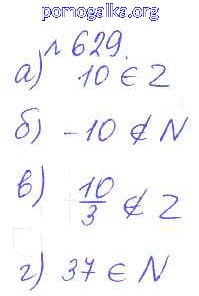 pomogalka.org
№ 629.
а) 10 ∈ Z
б) -10 ∉ N
в) 10/3 ∉ Z
г) 37 ∈ N